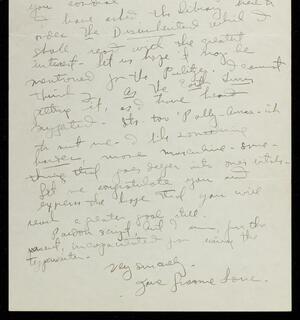 you
I have asked the library here to
order the Disinherited which I
shall read with the greatest
interest - let us hope it may be
mentioned for the Pulitzer. I cannot
think of as the
getting it, as I have heard
suggested - It's too "Polly-Anna-ish
to suit me - I like something
harsher, more masculine - some-
thing that goes deeper into one's entrails -
Let me congratulate you and
express the hope that you will
reach a greater goal still.
Pardon script, but I am, for the
moment, incapacitated for using the
typewriter.
Very sincerely